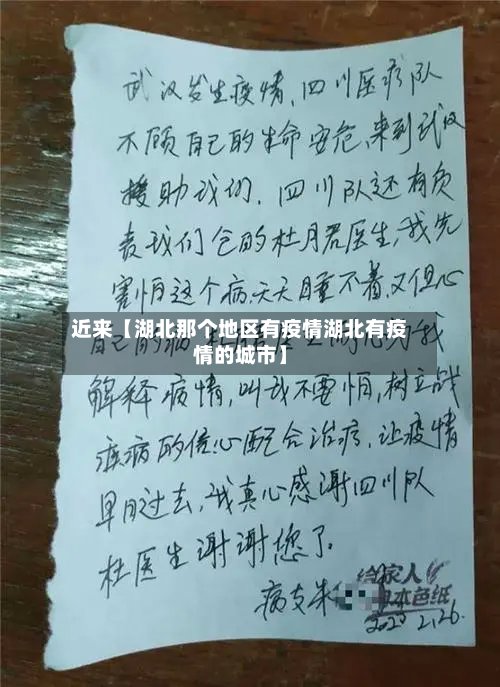 武汉发生疫情,四川医疗队
不顾自己的生命安危,来到武汉
援助我们,四川队还有负
责我们仓的杜月君医生,我先
害怕这个病,天天睡不着,又但心
近来【湖北那个地区有疫情湖北有疫
情的城市】
自己的病
我
解释病情,叫我不要怕,树立战
疾病的信心配合治疗,让疫情
早日过去,我真心感谢四川队
杜医生谢谢您了。
病友朱
给家人
日本色纸
2020 2,26.